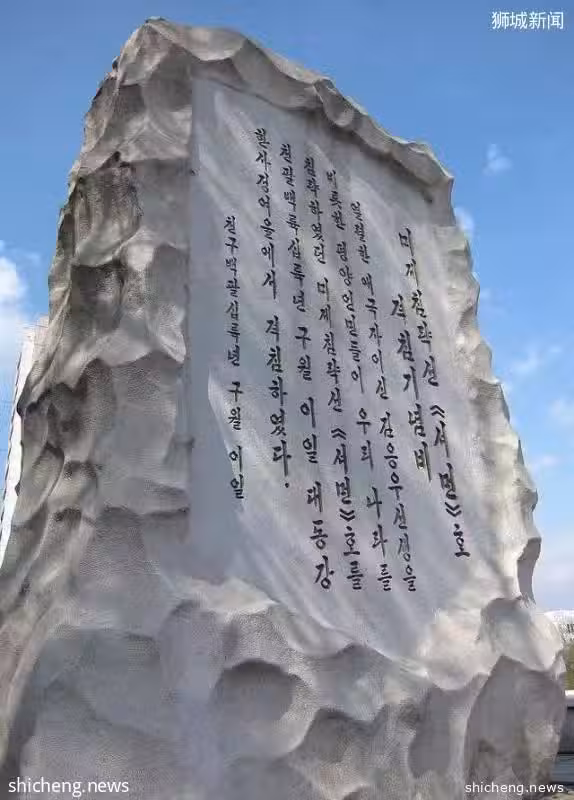 狮城新闻
미제침략선 《셔먼》호
격침기념비
열렬한 애국자이신 김응우선생을
비롯한 평양인민들이 우리 나라를
침략하였던 미제침략선 《셔먼》호를
천팔백륙십륙년 구월 이일 대동강
한사정여울에서 격침하였다.
천구백팔십륙년 구월 이일
shicheng.news
shicheng.news